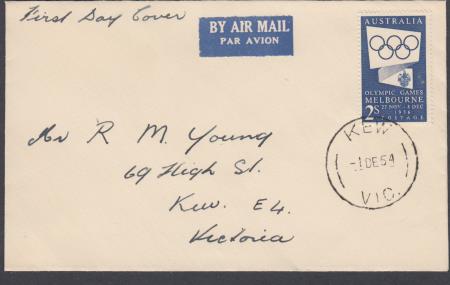 First Day Cover
BY AIR MAIL
PAR AVION
AUSTRALIA
OLYMPIC GAMES
MELBOURNE
22 NOV - 8 DEC
1956
2S POSTAGE
KEW
-1 DE 54
VIC.
Mr R M. Young
69 High St.
Kew. E4.
Victoria